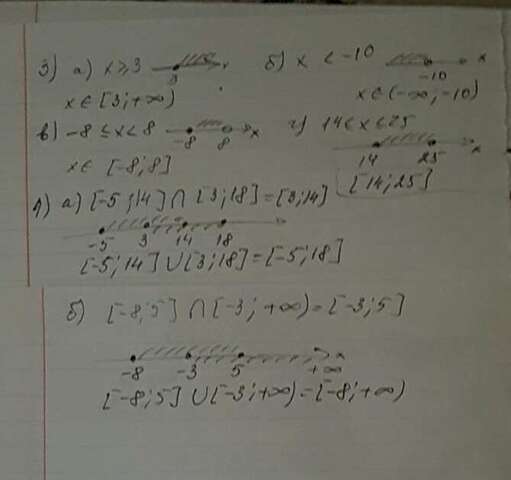 3) а) x ≥ 3 3 x б) x < -10 -10 x
x ∈ [3; +∞) x ∈ (-∞; -10)
в) -8 ≤ x < 8 -8 8 x г) 14 ≤ x ≤ 25
x ∈ [-8; 8] 14 25 x
[14; 25]
4) а) [-5; 14] ∩ [3; 18] = [3; 14]
-5 3 14 18
[-5; 14] ∪ [3; 18] = [-5; 18]
б) [-8; 5] ∩ [-3; +∞) = [-3; 5]
-8 -3 5 +∞ x
[-8; 5] ∪ [-3; +∞) = [-8; +∞)